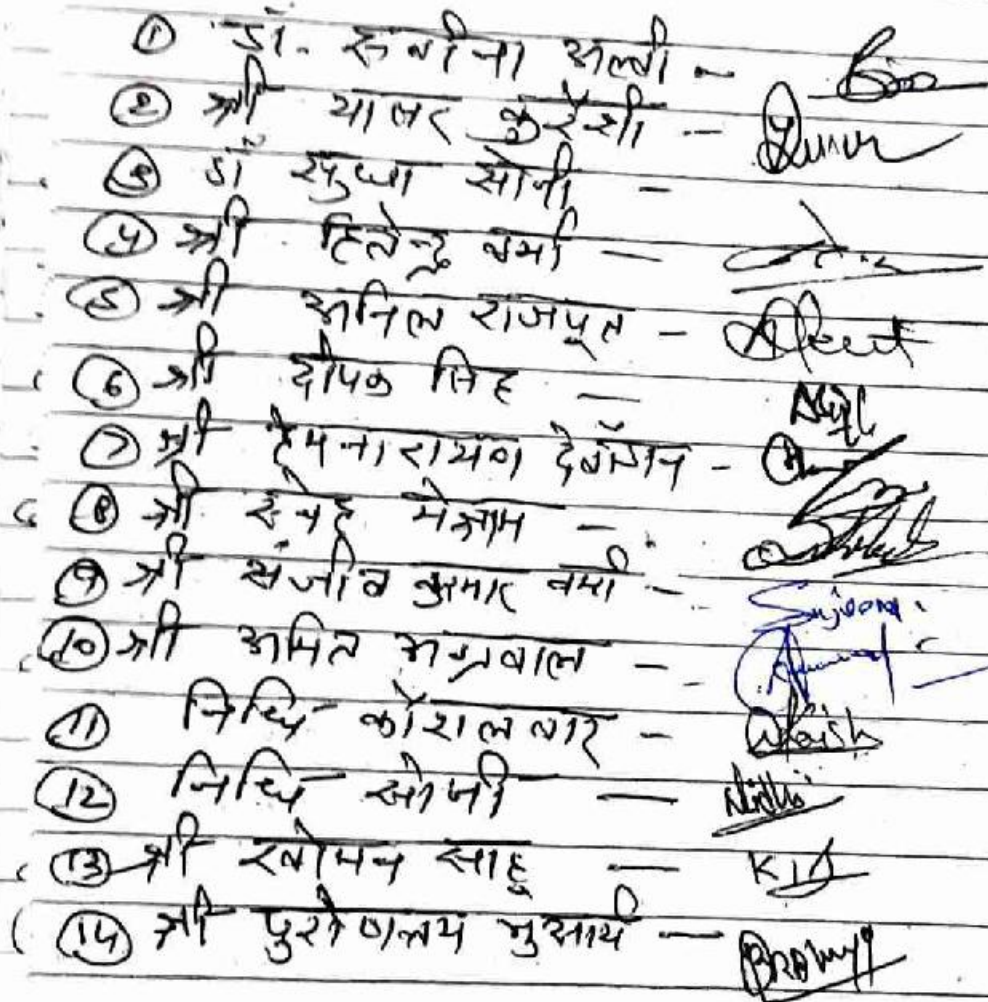 ① डॉ. सबीना अल्वी -
② श्री यासर कुरैशी -
③ डॉ सुधा सोनी -
④ श्री हितेन्द्र वर्मा -
⑤ श्री अनिल राजपूत -
⑥ श्री दीपक सिंह -
⑦ श्री हेमनारायण देवांगन -
⑧ श्री स्नेह मेश्राम -
⑨ श्री संजीव कुमार वर्मा - Sujeena
⑩ श्री अमित अग्रवाल -
⑪ निधि कोशलवार -
⑫ निधि सोनी - Nidhi
⑬ श्री खोमन साहू -
⑭ श्री